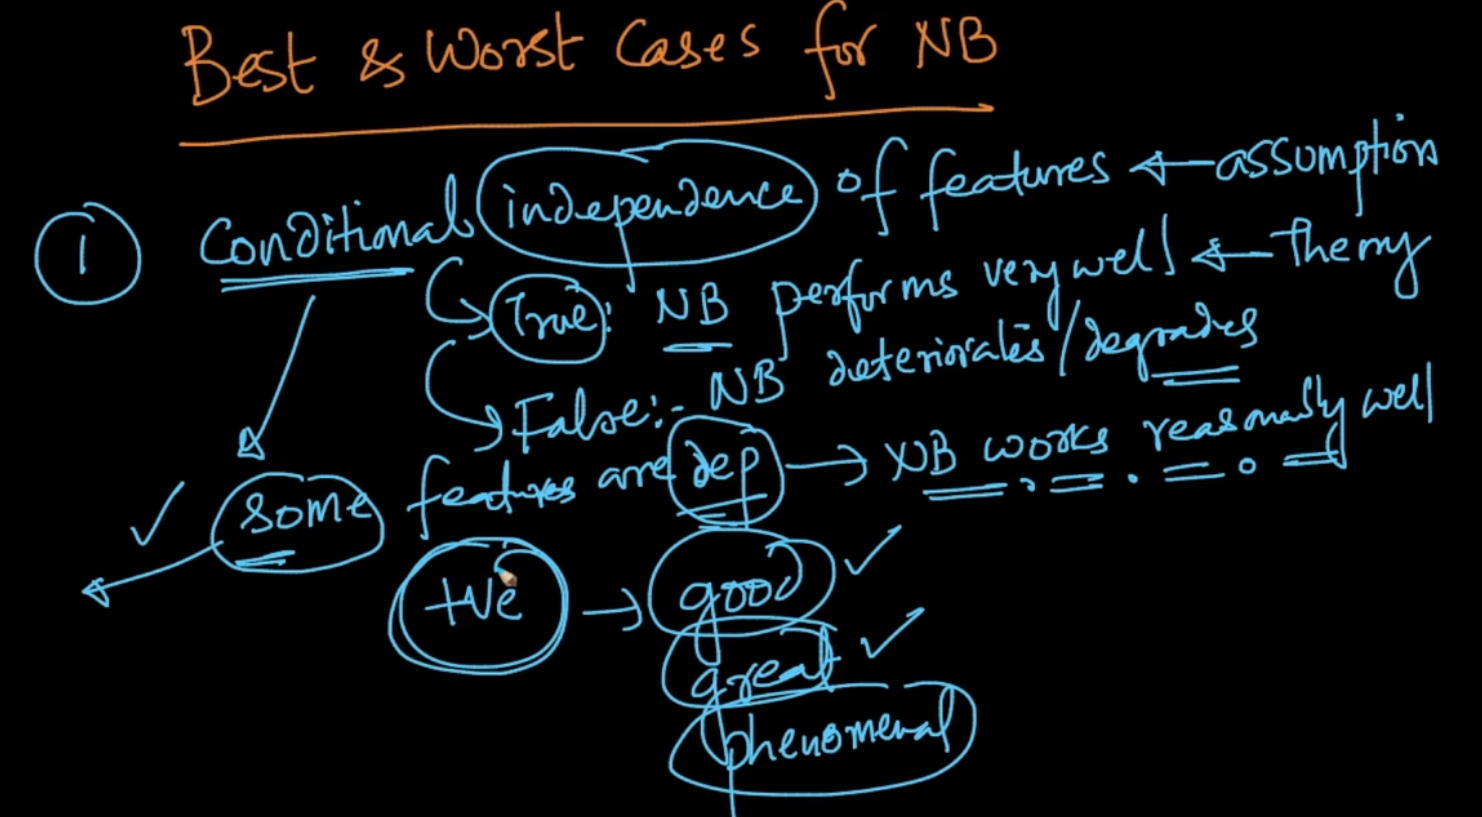 Best & Worst Cases for NB
1 Conditional independence of features ← assumption
True: NB performs very well ← Theory
False:- NB deteriorates/degrades
some features are dep → NB works reasonably well
+ve → good
great
phenomenal